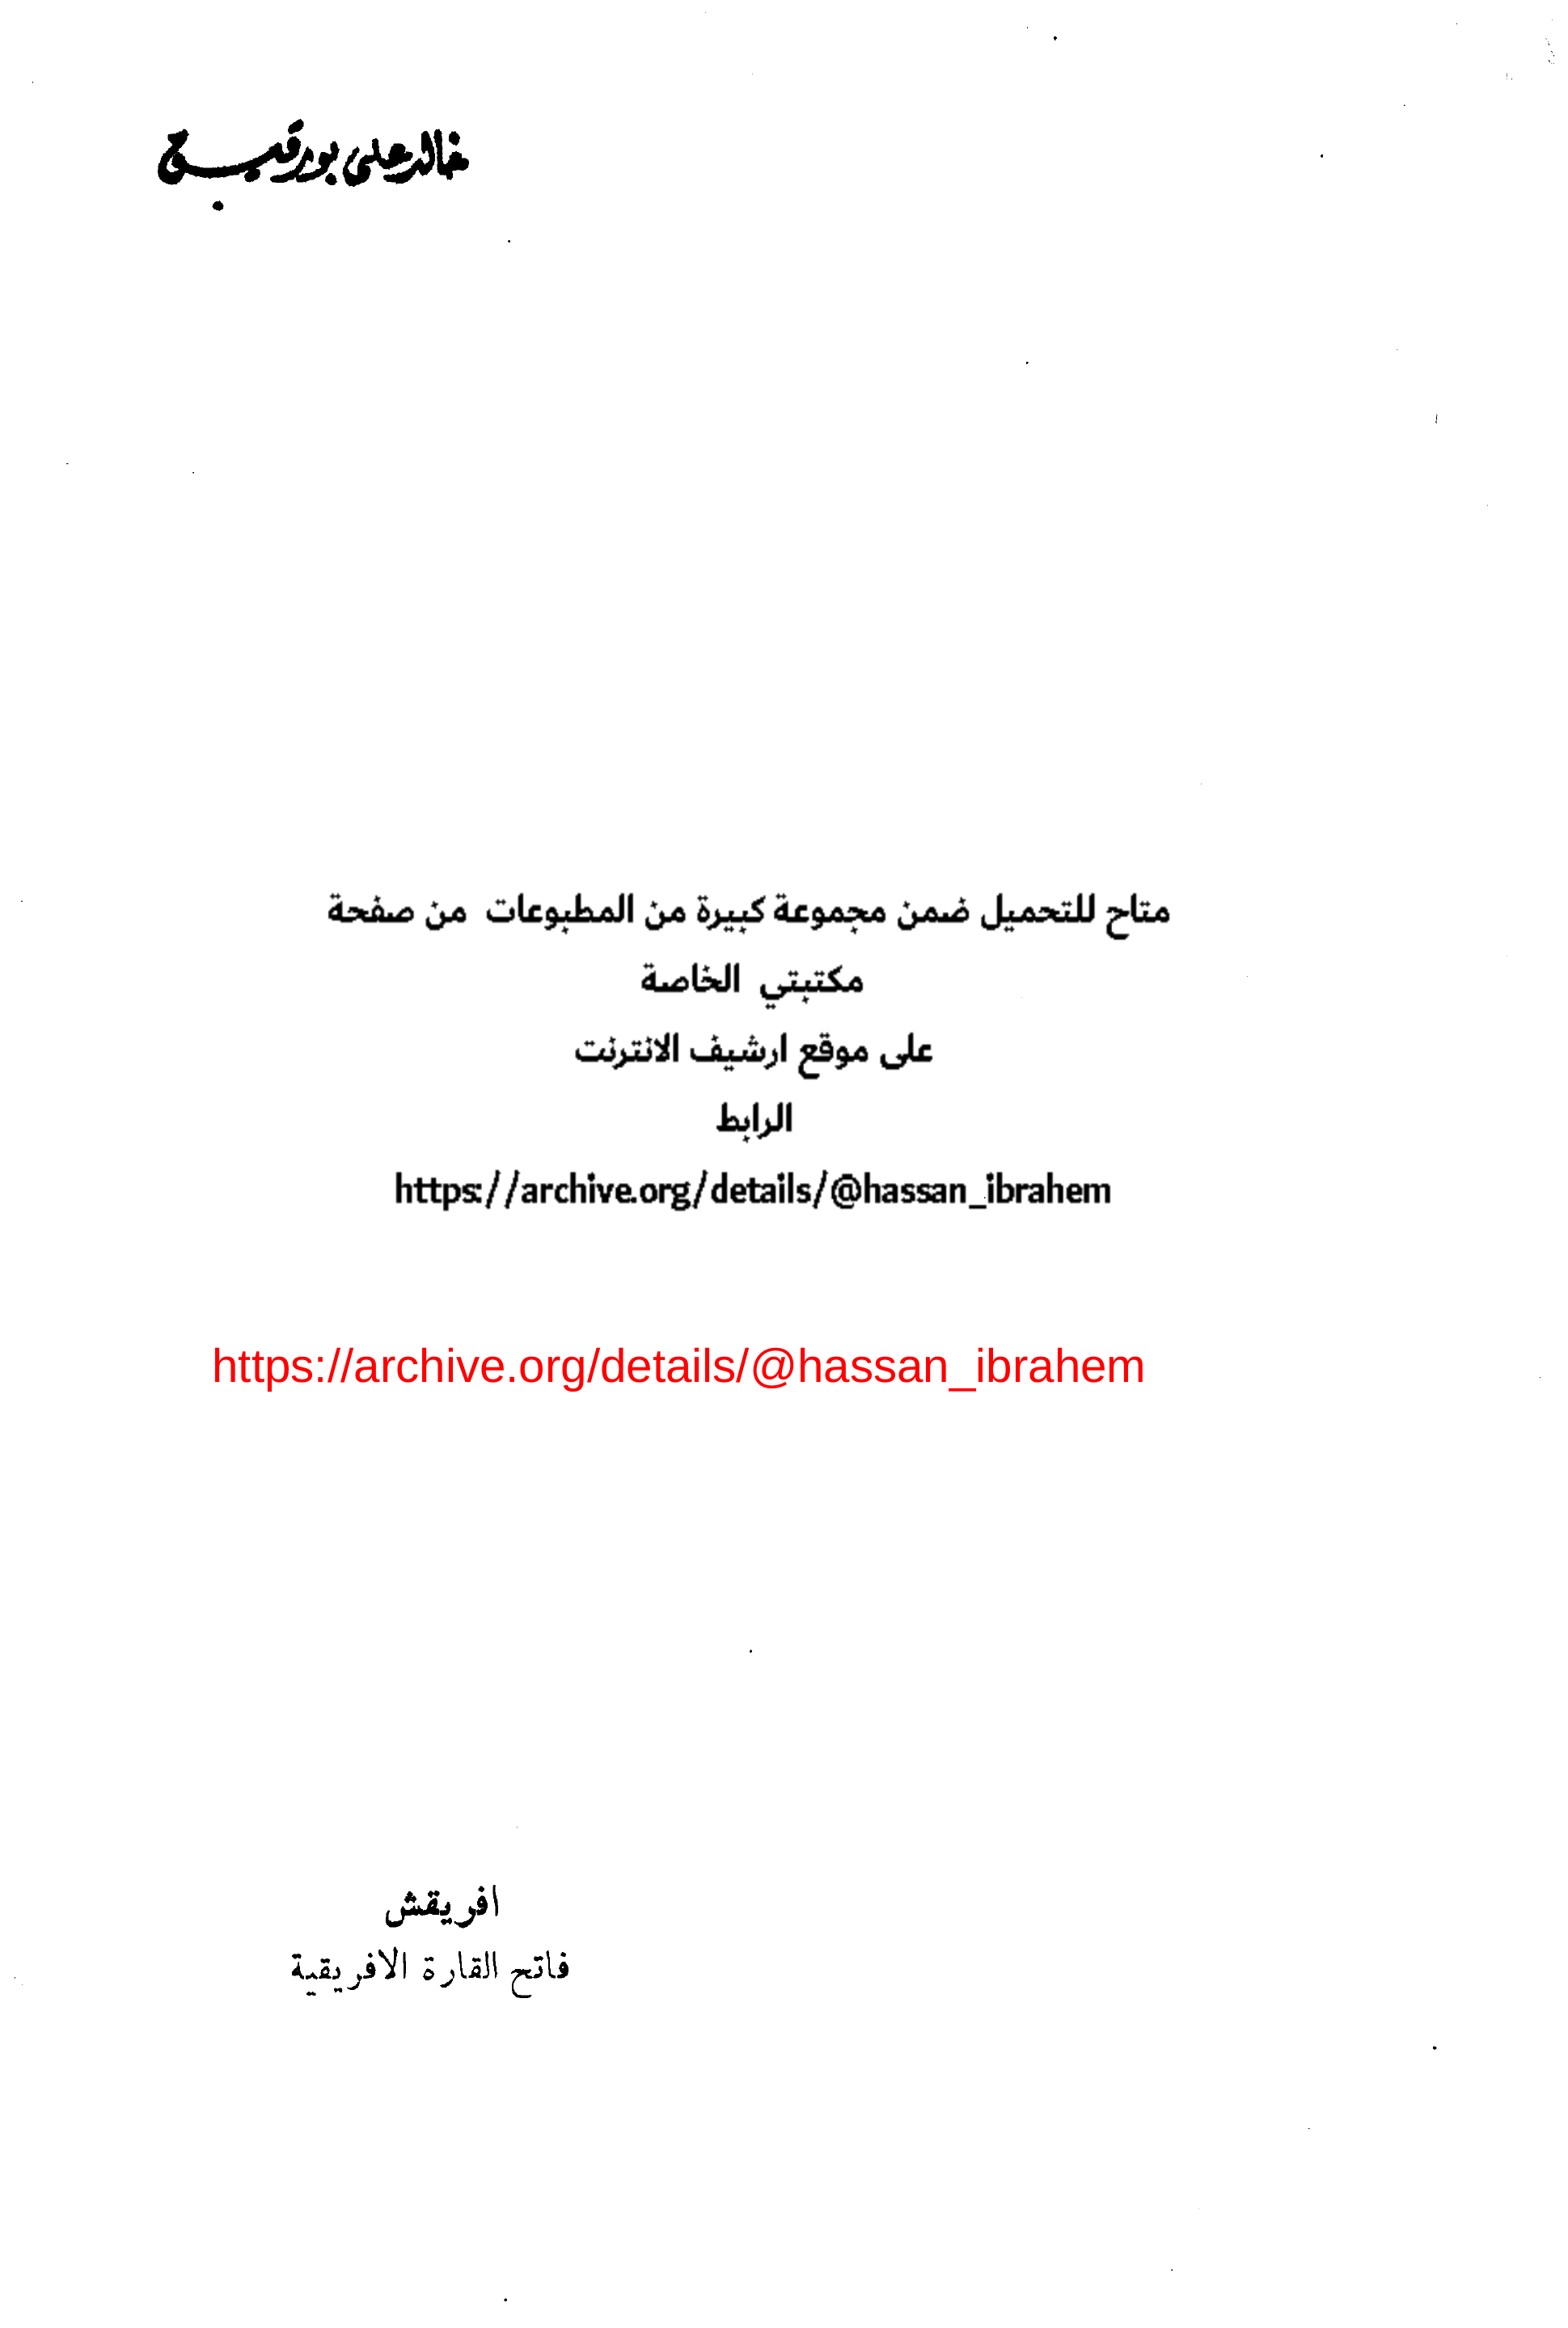 خالد علي بورقيبة
متاح للتحميل ضمن مجموعة كبيرة من المطبوعات من صفحة
مكتبتي الخاصة
على موقع ارشيف الانترنت
الرابط
https://archive.org/details/@hassan_ibrahem
https://archive.org/details/@hassan_ibrahem
افريقش
فاتح القارة الافريقية